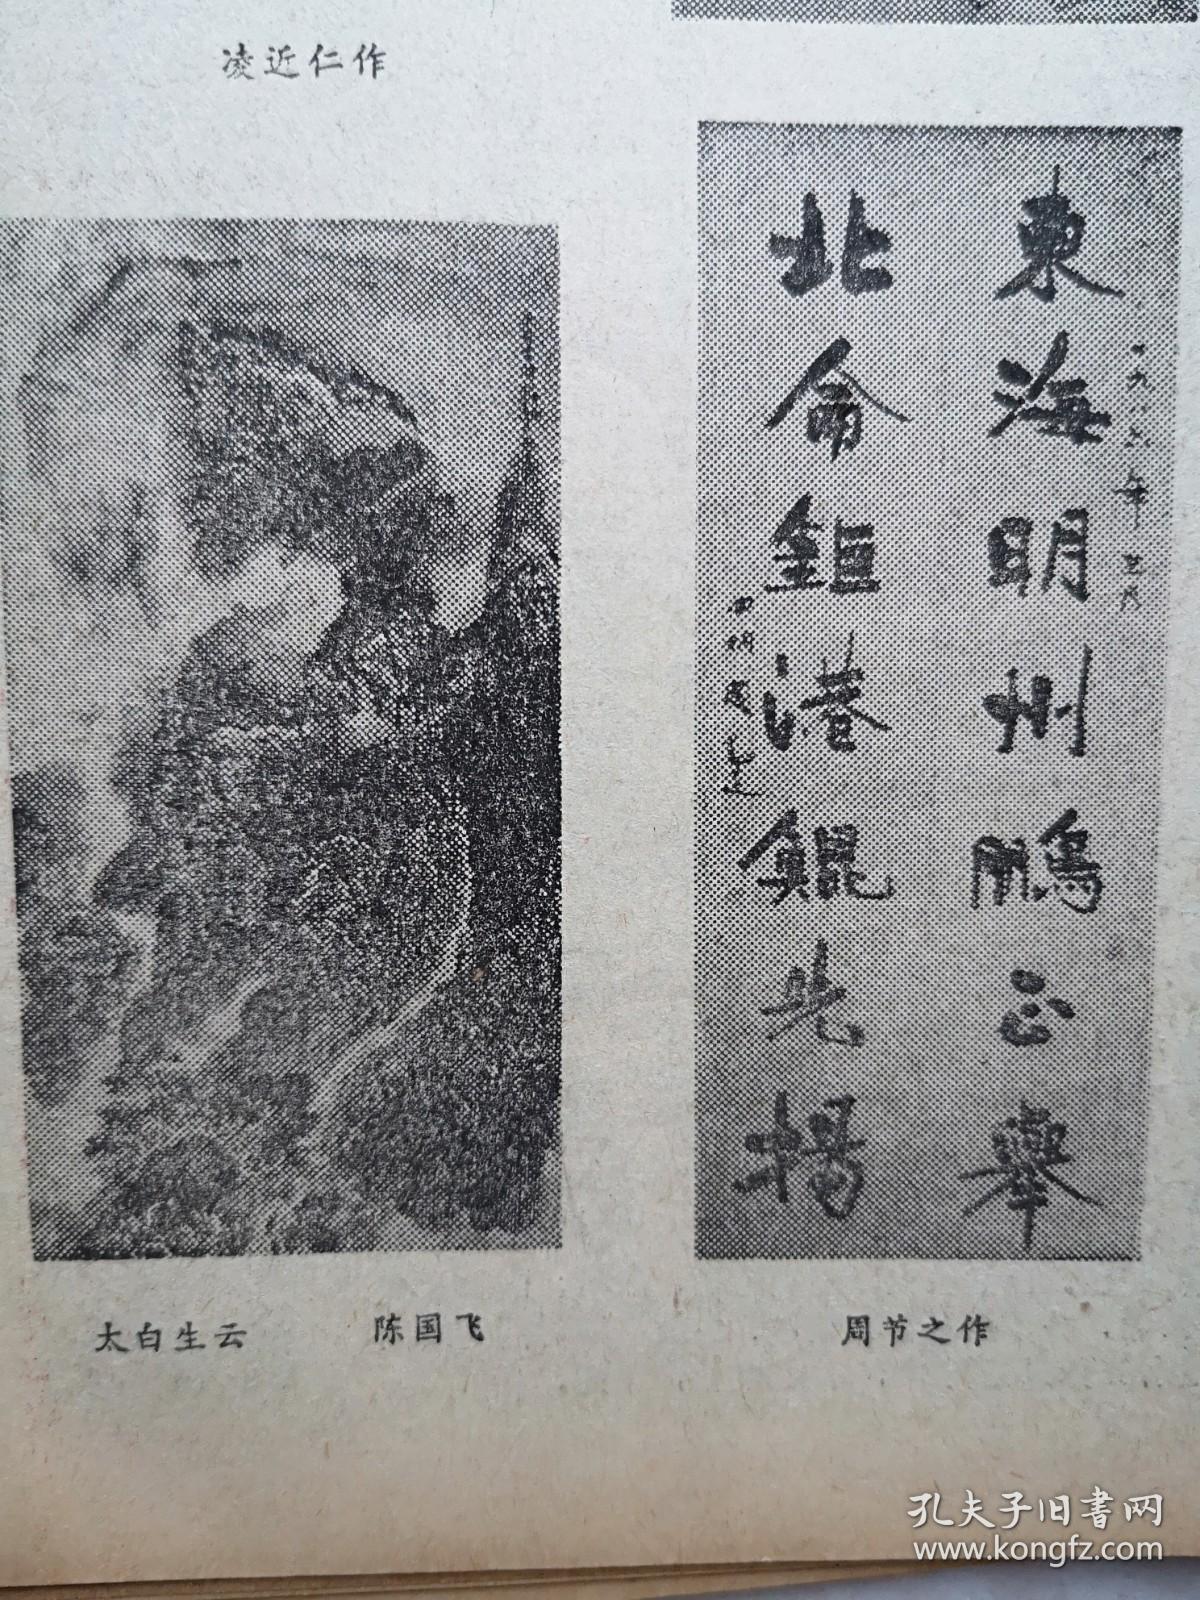 凌近仁作
東海明州鵬正舉
北侖鉅港鯤先揚
一九八六年
太白生云
陈国飞
周节之作
孔夫子旧书网
www.kongfz.com